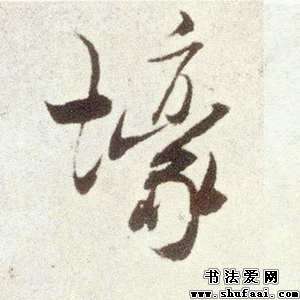 壕
书法爱网
www.shufaai.com